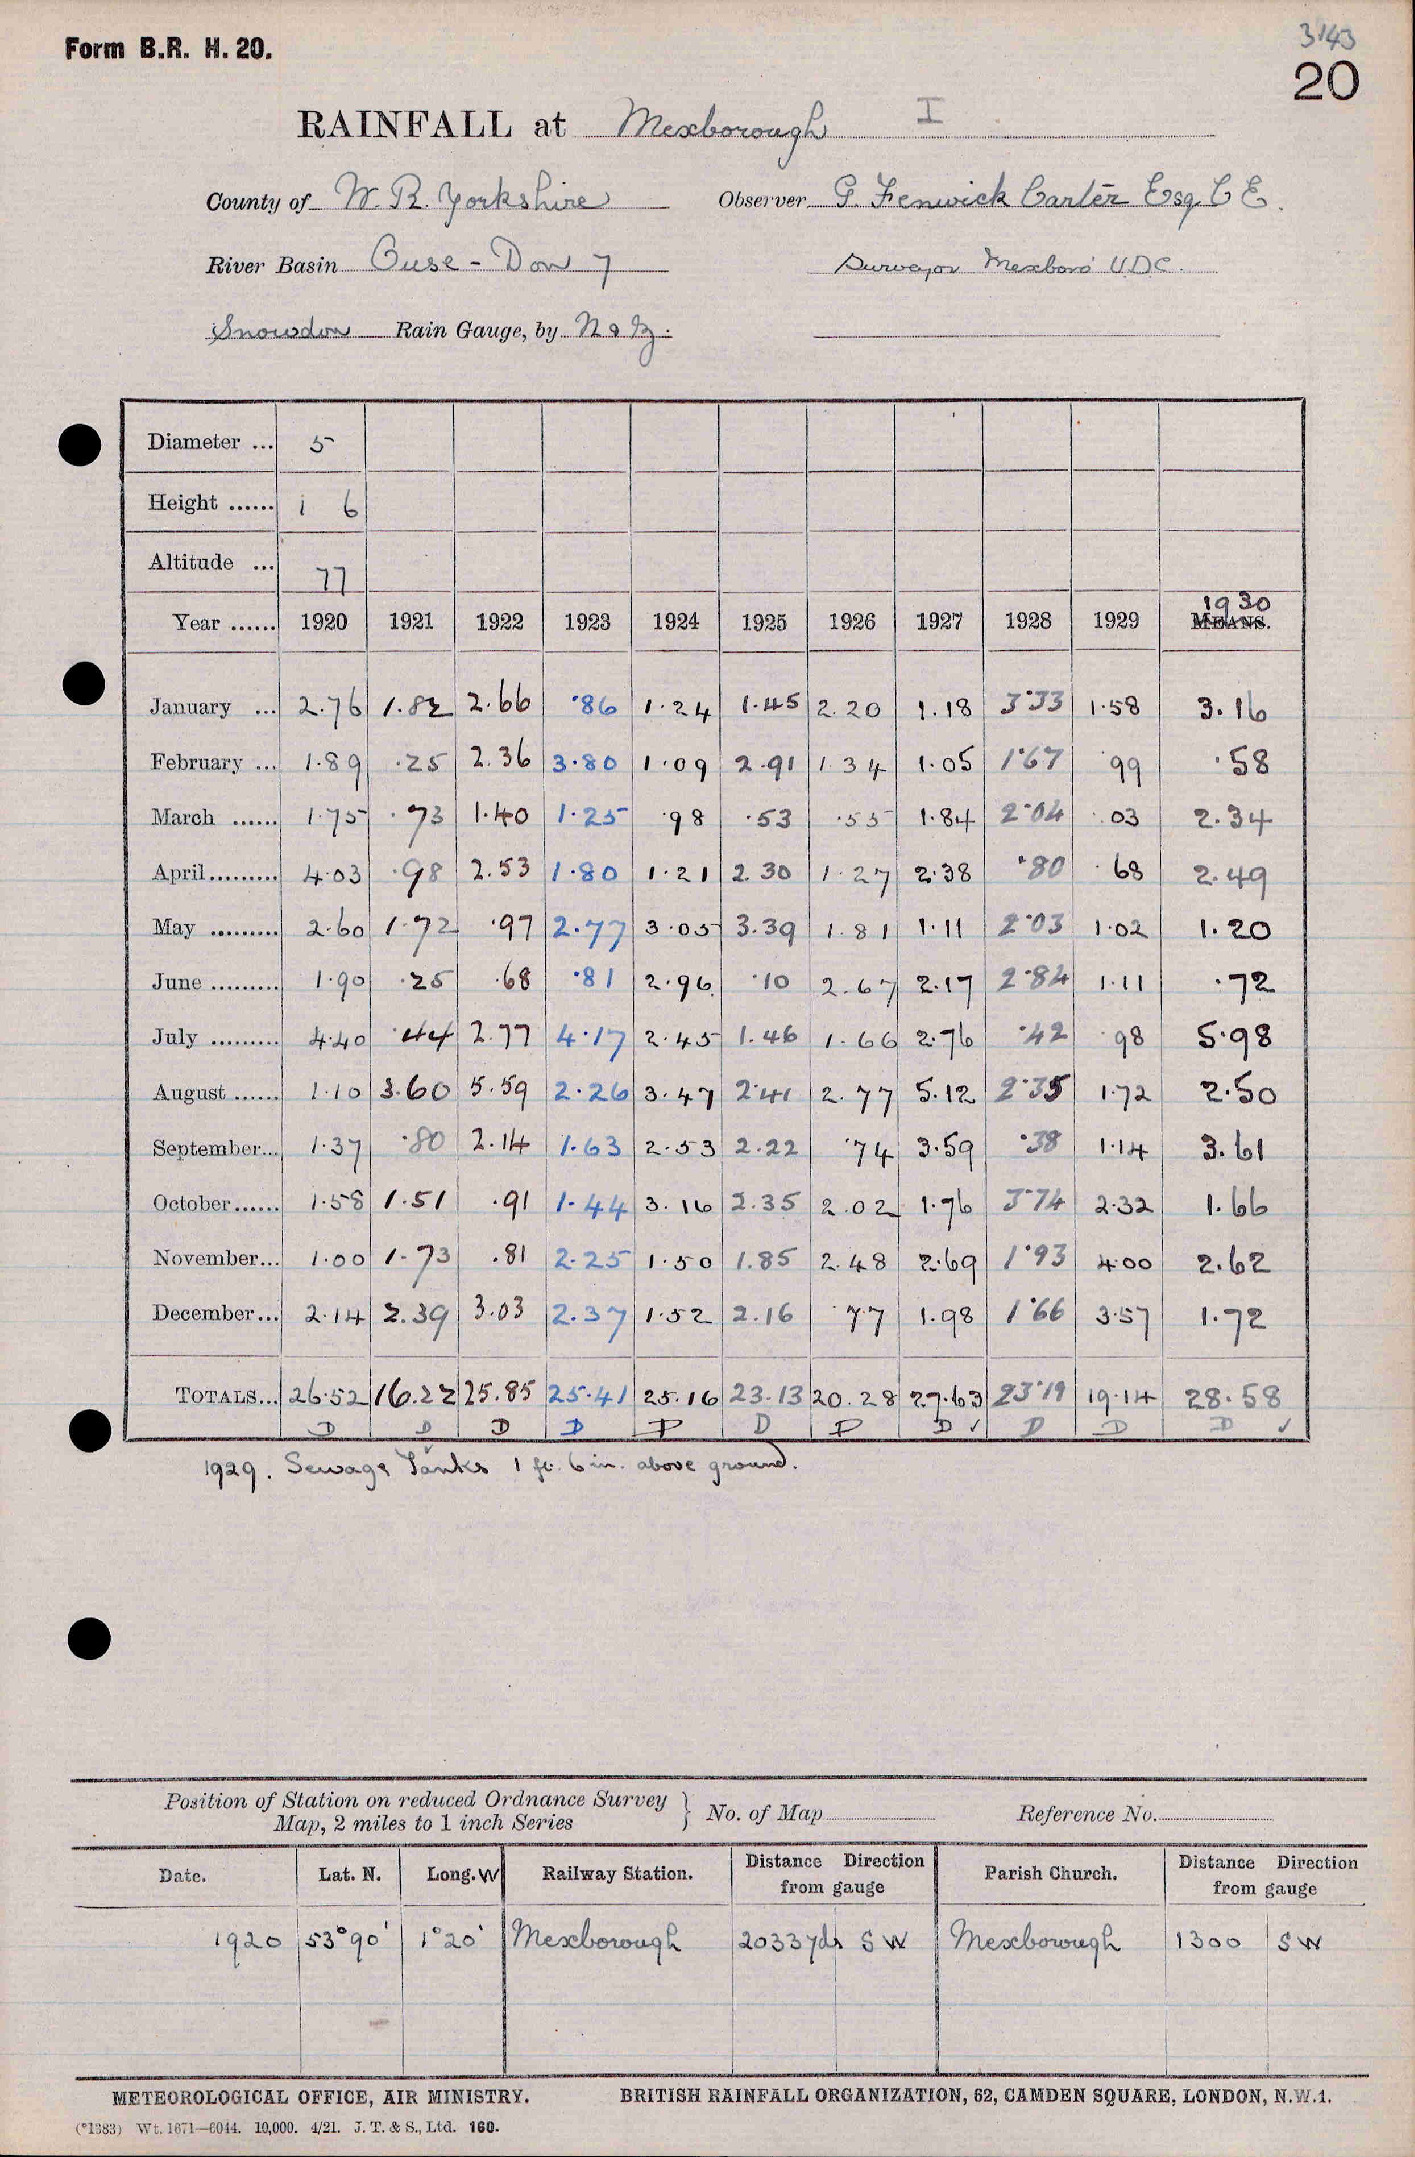 Form B.R. H. 20.
3143
20
RAINFALL at Mexborough I
County of W. R. Yorkshire Observer G. Fenwick Carter Esq C E.
River Basin Ouse - Don 7 Surveyor Mexboro' U.D.C.
Snowdon Rain Gauge, by N & Z.
Diameter ... 5
Height ...... 1 6
Altitude ... 77
1930
Year ...... 1920 1921 1922 1923 1924 1925 1926 1927 1928 1929 MEANS.
January ... 2.76 1.82 2.66 .86 1.24 1.45 2.20 1.18 3.33 1.58 3.16
February ... 1.89 .25 2.36 3.80 1.09 2.91 1.34 1.05 1.67 .99 .58
March ...... 1.75 .73 1.40 1.25 .98 .53 .55 1.84 2.04 .03 2.34
April......... 4.03 .98 2.53 1.80 1.21 2.30 1.27 2.38 .80 .68 2.49
May ......... 2.60 1.72 .97 2.77 3.05 3.39 1.81 1.11 2.03 1.02 1.20
June ......... 1.90 .25 .68 .81 2.96 .10 2.67 2.17 2.84 1.11 .72
July ......... 4.40 .44 2.77 4.17 2.45 1.46 1.66 2.76 .42 .98 5.98
August ...... 1.10 3.60 5.59 2.26 3.47 2.41 2.77 5.12 2.35 1.72 2.50
September... 1.37 .80 2.14 1.63 2.53 2.22 .74 3.59 .38 1.14 3.61
October...... 1.58 1.51 .91 1.44 3.16 2.35 2.02 1.76 3.74 2.32 1.66
November... 1.00 1.73 .81 2.25 1.50 1.85 2.48 2.69 1.93 4.00 2.62
December... 2.14 2.39 3.03 2.37 1.52 2.16 .77 1.98 1.66 3.57 1.72
TOTALS... 26.52 16.22 25.85 25.41 25.16 23.13 20.28 27.63 23.19 19.14 28.58
D D D D D D D D ✓ D D D ✓
1929. Sewage Tanks 1 ft. 6 in. above ground.
Position of Station on reduced Ordnance Survey
Map, 2 miles to 1 inch Series } No. of Map Reference No.
Date. Lat. N. Long. W Railway Station. Distance Direction from gauge Parish Church. Distance Direction from gauge
1920 53°90' 1°20' Mexborough 2033yds SW Mexborough 1300 SW
METEOROLOGICAL OFFICE, AIR MINISTRY. BRITISH RAINFALL ORGANIZATION, 62, CAMDEN SQUARE, LONDON, N.W.1.
(*1383) Wt. 1671—6044. 10,000. 4/21. J. T. & S., Ltd. 160.